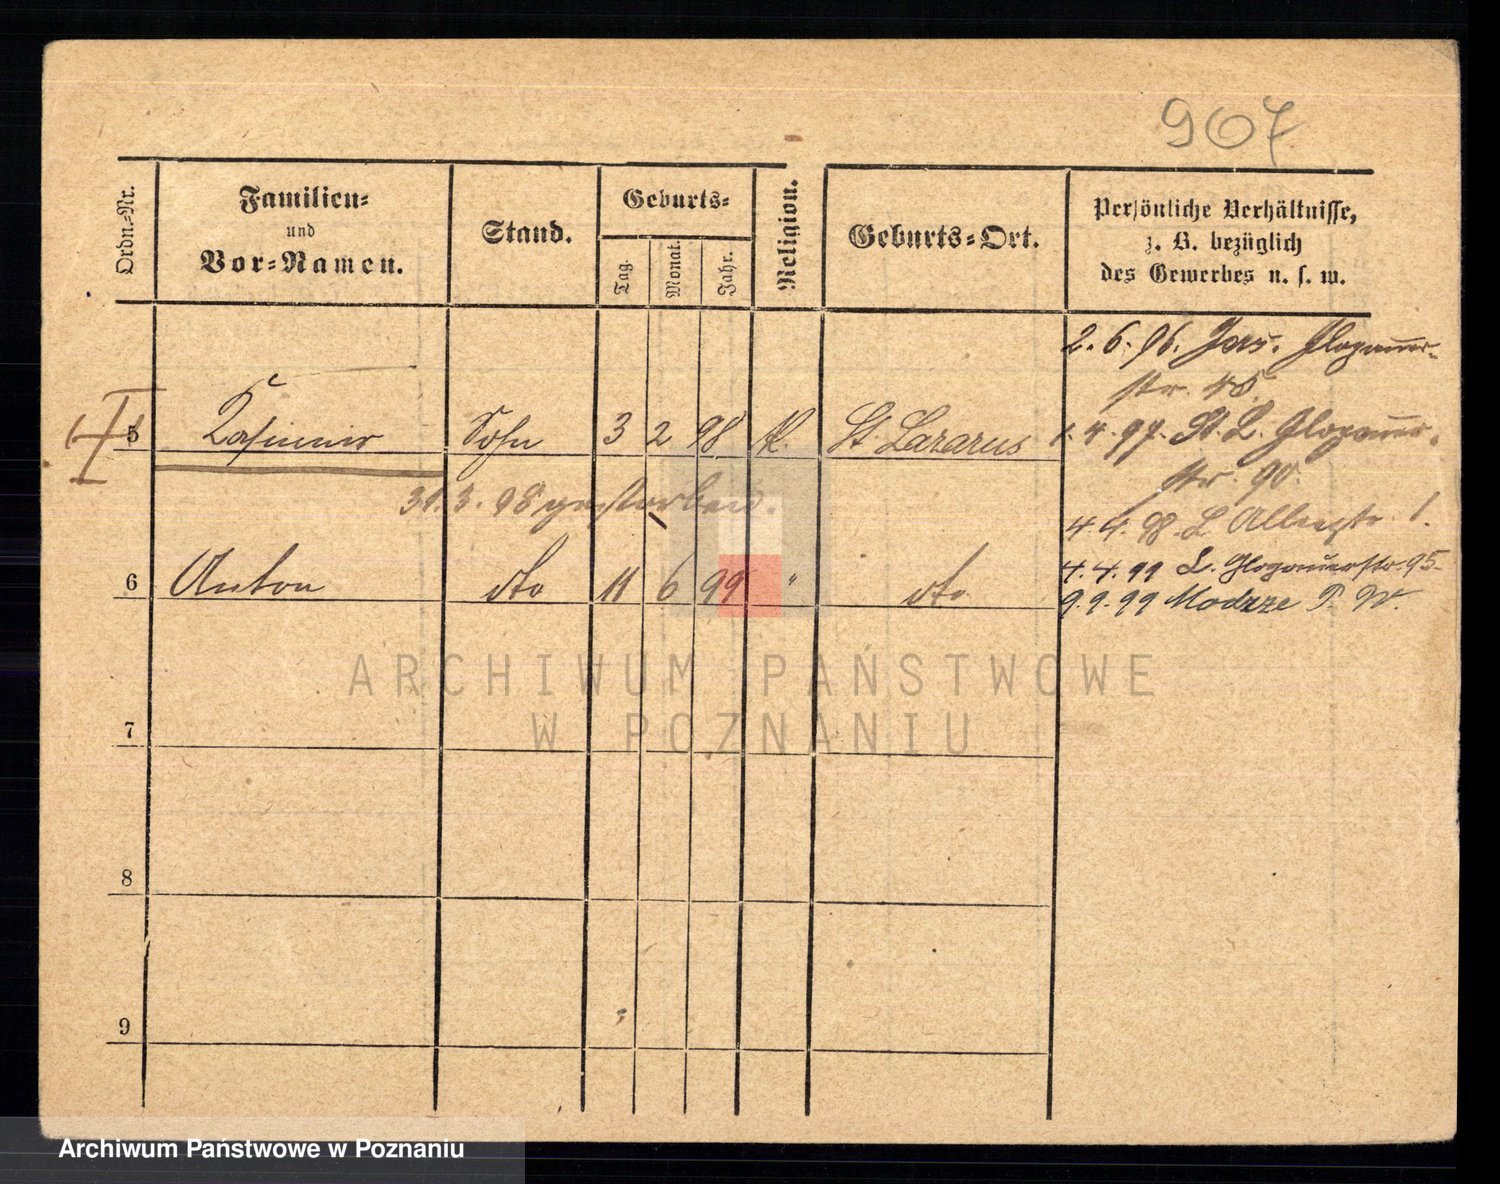 967
Ordn.-Nr.
Familien-
und
Vor-Namen.
Stand.
Geburts-
Tag.
Monat.
Jahr.
Religion.
Geburts-Ort.
Persönliche Verhältnisse,
z. B. bezüglich
des Gewerbes u. s. w.
2. 6. 96. Jers. Glogauer-
str. 45.
5 Kasimir Sohn 3 2 98 k. St. Lazarus
1. 4. 97. St. L. Glogauer-
str. 90.
31. 3. 98 gestorben.
4. 4. 98. L Alleestr. 1.
4. 4. 99 L. Glogauerstr. 95
6 Anton dto 11 6 99 " dto.
9. 9. 99 Modrze P. W.
7
8
9
ARCHIWUM PAŃSTWOWE
W POZNANIU
Archiwum Państwowe w Poznaniu